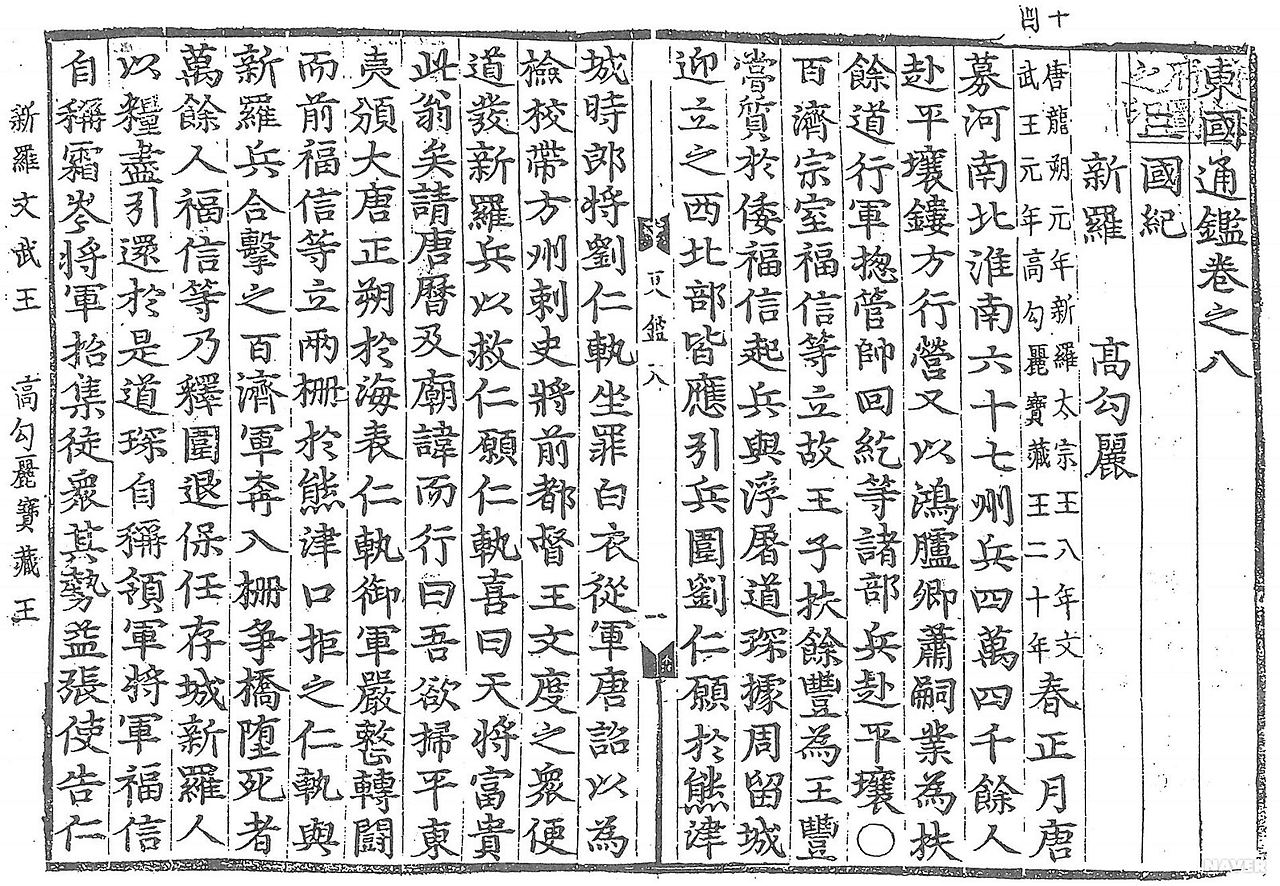 十四
東國通鑑卷之八
三國紀
新羅 高勾麗
唐龍朔元年新羅太宗王八年文
武王元年高勾麗寶藏王二十年
春正月唐
募河南北淮南六十七州兵四萬四千餘人
赴平壤鏤方行營又以鴻臚卿蕭嗣業為扶
餘道行軍摠管帥回紇等諸部兵赴平壤○
百濟宗室福信等立故王子扶餘豐為王豐
嘗質於倭福信起兵與浮屠道琛據周留城
迎立之西北部皆應引兵圍劉仁願於熊津
鑑八 一
城時郎將劉仁軌坐罪白衣從軍唐詔以為
檢校帶方州刺史將前都督王文度之衆便
道發新羅兵以救仁願仁軌喜曰天將富貴
此翁矣請唐曆及廟諱而行曰吾欲掃平東
夷頒大唐正朔於海表仁軌御軍嚴整轉鬪
而前福信等立兩柵於熊津口拒之仁軌與
新羅兵合擊之百濟軍奔入柵爭橋墮死者
萬餘人福信等乃釋圍退保任存城新羅人
以糧盡引還於是道琛自稱領軍將軍福信
自稱霜岑將軍招集徒衆其勢益張使告仁
新羅文武王 高勾麗寶藏王
NAVER